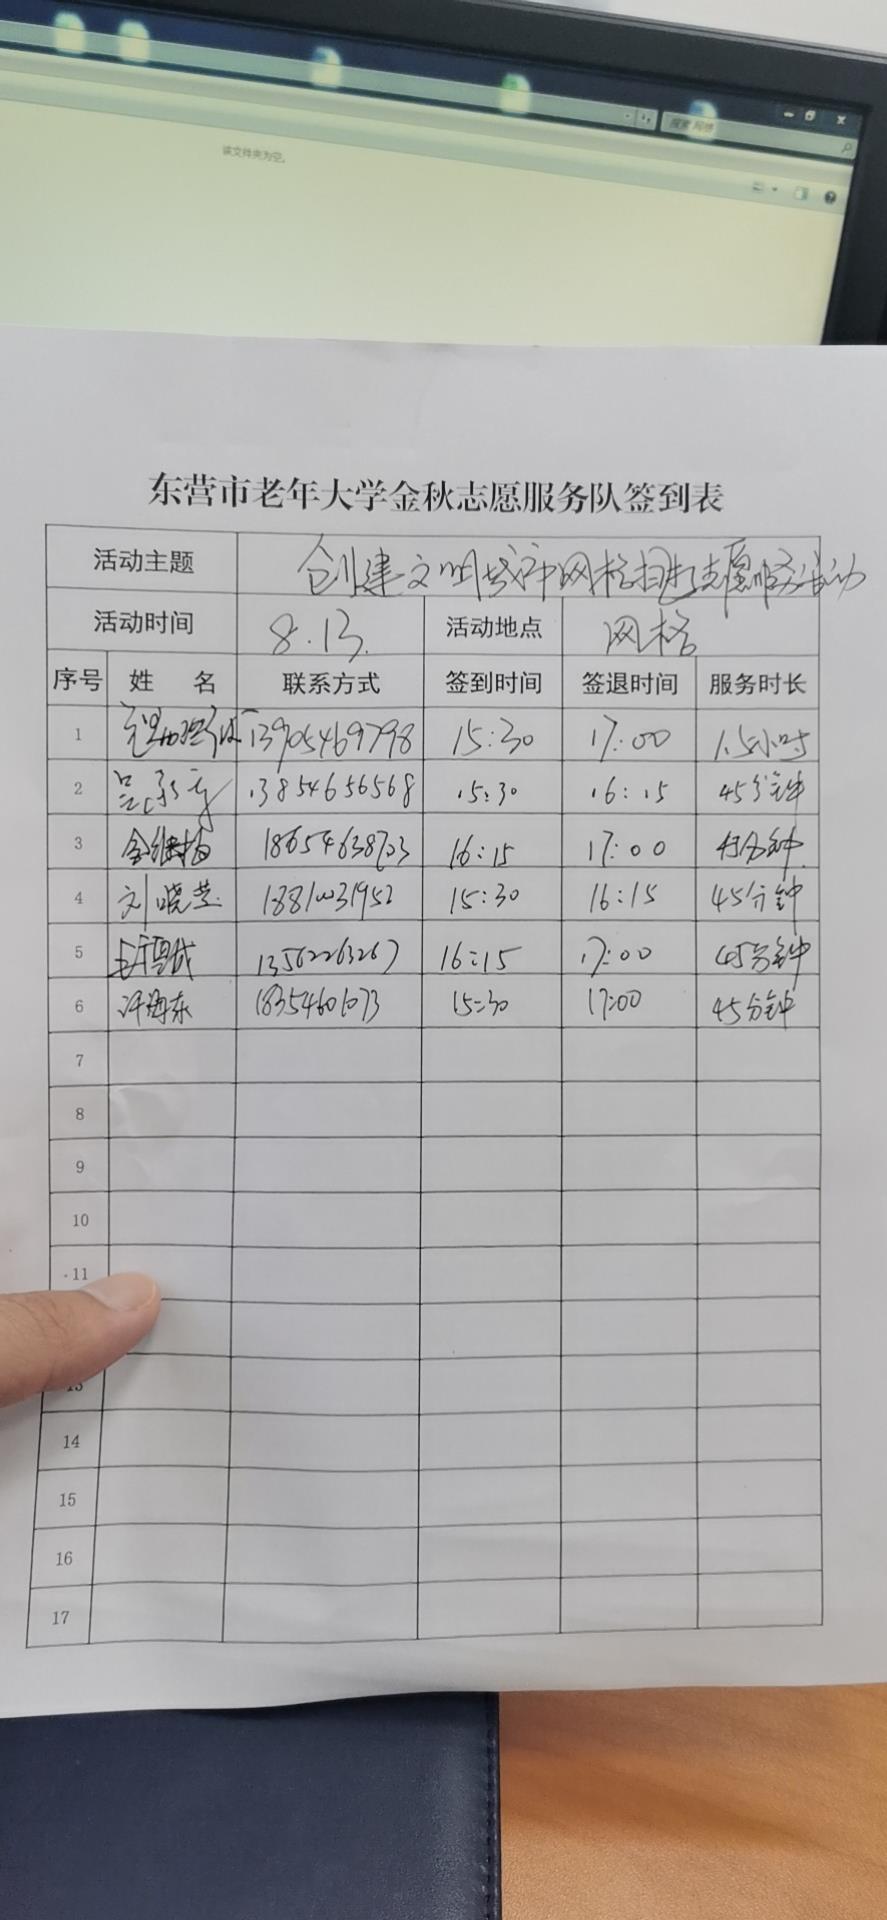 该文件夹为空。
东营市老年大学金秋志愿服务队签到表
活动主题 创建文明城市网格扫扫志愿服务活动
活动时间 8.13. 活动地点 网格
序号 姓 名 联系方式 签到时间 签退时间 服务时长
1 13905469798 15:30 17:00 1.5小时
2 13854656568 15:30 16:15 45分钟
3 16:15 17:00 45分钟
4 刘晓芸 15:30 16:15 45分钟
5 13562263267 16:15 17:00 45分钟
6 许海东 18354601073 15:30 17:00 45分钟
7
8
9
10
11
13
14
15
16
17